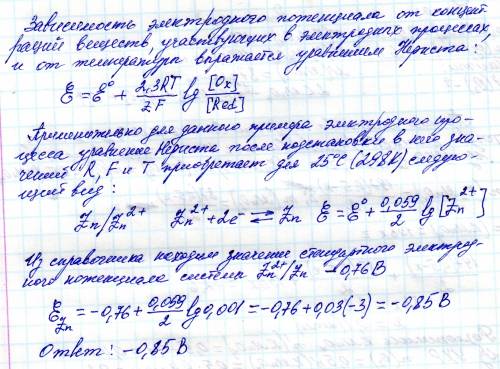 Зависимость электродного потенциала от концент
раций веществ, участвующих в электродных процессах,
и от температуры выражается уравнением Нернста:
E = E° + 2,3RT/ZF lg [Ox]/[Red]
Применительно для данного примера электродного про-
цесса уравнение Нернста после подстановки в него зна-
чений R, F и T приобретает для 25°C (298K) следую-
щий вид:
Zn/Zn²⁺ Zn²⁺+2e⁻ ⇄ Zn E = E° + 0,059/2 lg[Zn²⁺]
Из справочника находим значение стандартного электрод-
ного потенциала системы Zn²⁺/Zn -0,76 В
E Zn = -0,76 + 0,059/2 lg 0,001 = -0,76 + 0,03(-3) = -0,85 В
Ответ: -0,85 В